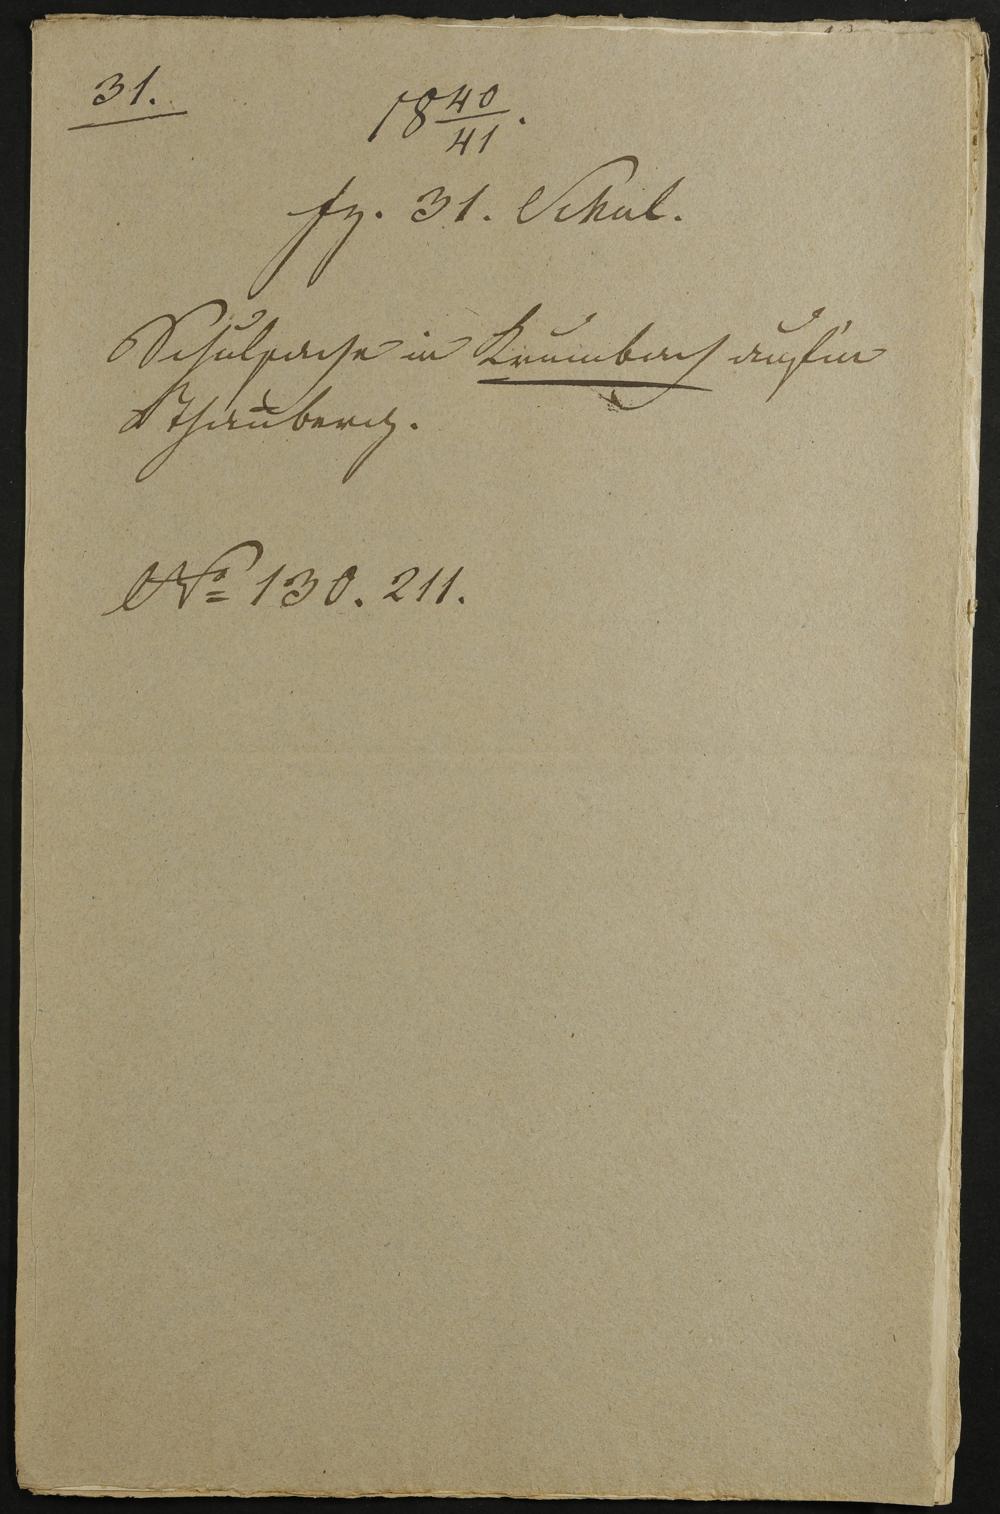 31.
18 40/41.
fz. 31. Schul.
Schulsache in Krumbach
Nº 130. 211.